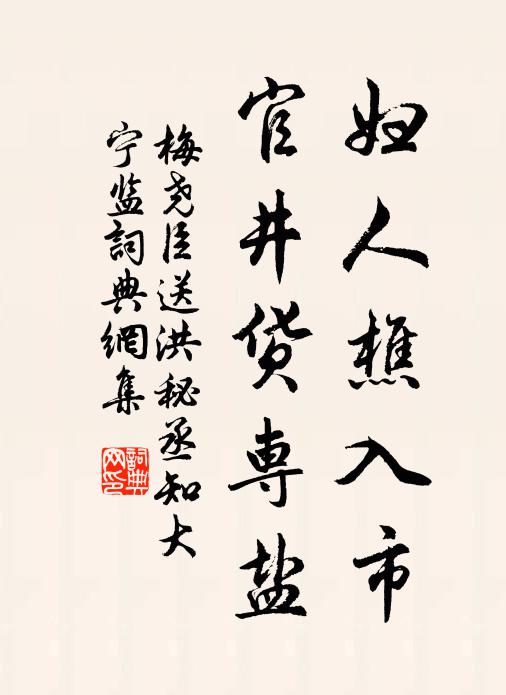 妇人樵入市
官井货专盐
梅尧臣送洪秘丞知大
宁监詞典網集
詞典网印